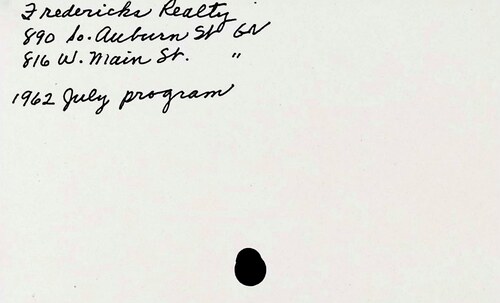 Fredericks Realty
890 So. Auburn St GV
816 W. Main St. "
1962 July program